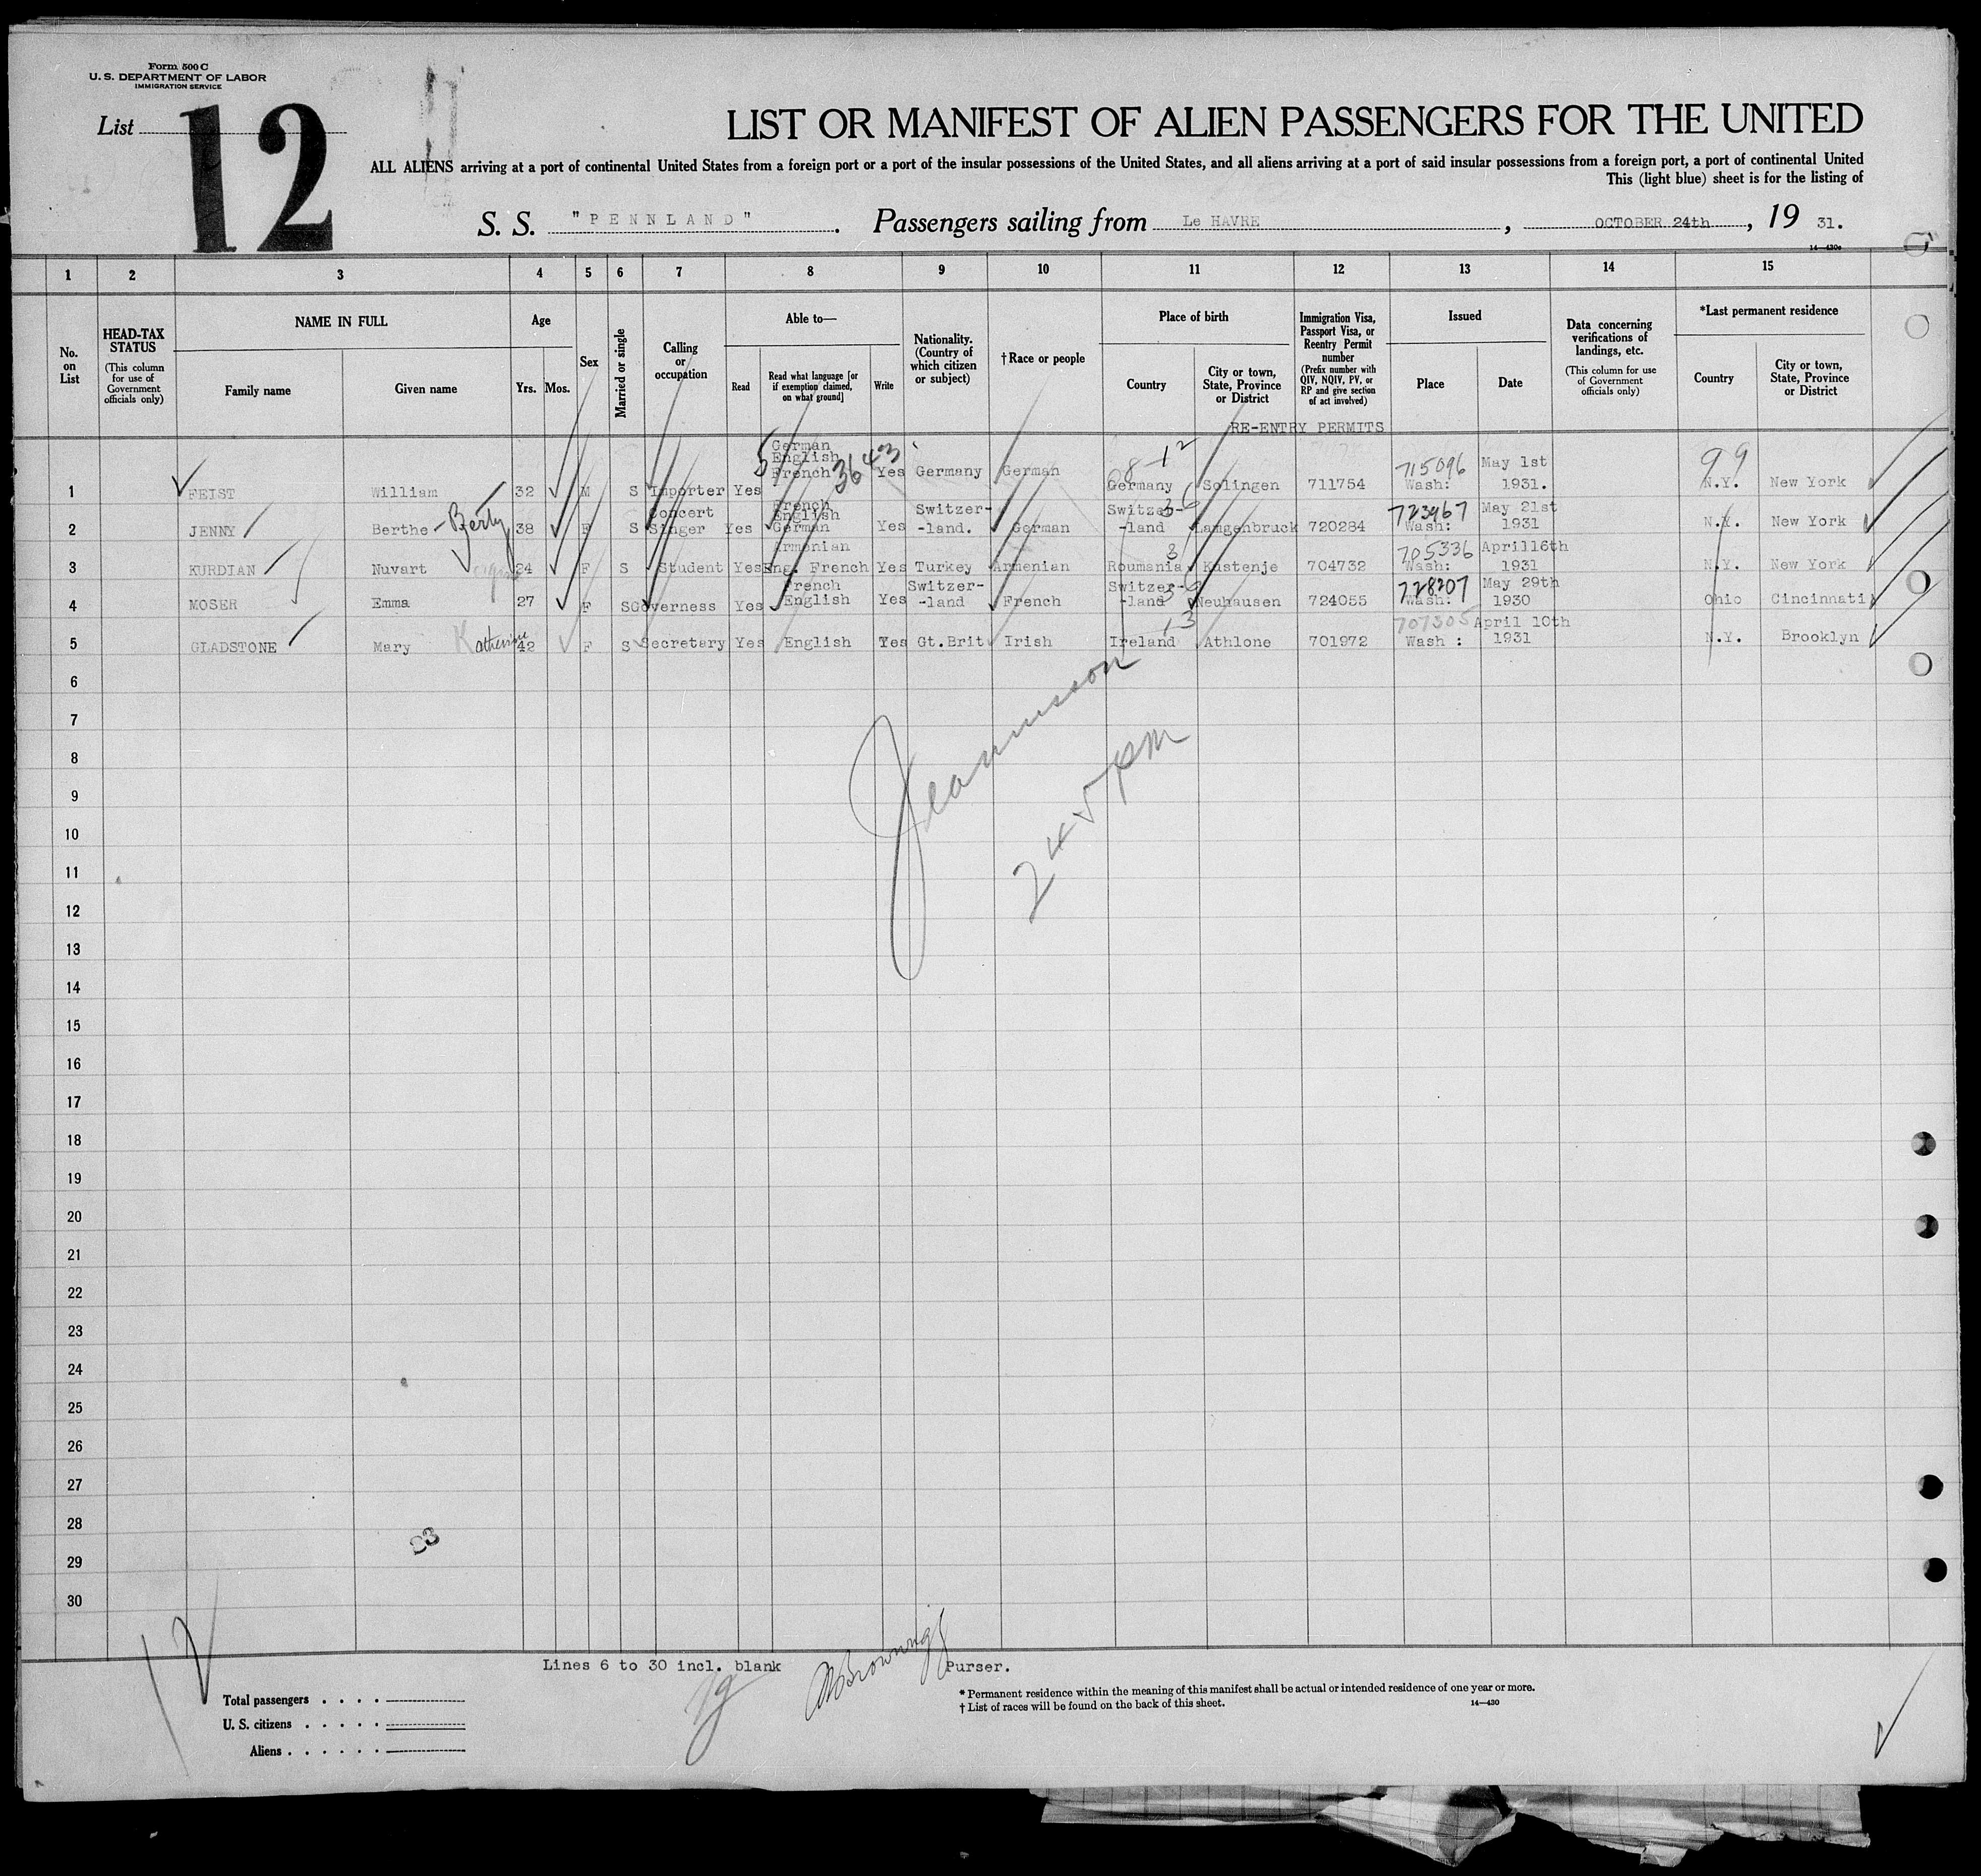 Form 500 C
U. S. DEPARTMENT OF LABOR
IMMIGRATION SERVICE
List 12
LIST OR MANIFEST OF ALIEN PASSENGERS FOR THE UNITED
ALL ALIENS arriving at a port of continental United States from a foreign port or a port of the insular possessions of the United States, and all aliens arriving at a port of said insular possessions from a foreign port, a port of continental United
This (light blue) sheet is for the listing of
S. S. "PENNLAND". Passengers sailing from Le HAVRE, OCTOBER 24th, 19 31.
14—430a
1 2 3 4 5 6 7 8 9 10 11 12 13 14 15
No. on List
HEAD-TAX STATUS
(This column for use of Government officials only)
NAME IN FULL
Family name
Given name
Age
Yrs. Mos.
Sex
Married or single
Calling or occupation
Able to—
Read
Read what language [or if exemption claimed, on what ground]
Write
Nationality. (Country of which citizen or subject)
†Race or people
Place of birth
Country
City or town, State, Province or District
Immigration Visa, Passport Visa, or Reentry Permit number
(Prefix number with QIV, NQIV, PV, or RP and give section of act involved)
Issued
Place
Date
Data concerning verifications of landings, etc.
(This column for use of Government officials only)
*Last permanent residence
Country
City or town, State, Province or District
RE-ENTRY PERMITS
5 3643 8-12 99
1 FEIST William 32 M S Importer Yes German English French Yes Germany German Germany Solingen 711754 715096 Wash: May 1st 1931. N.Y. New York
2 JENNY Berthe - Berty 38 F S Concert Singer Yes French English German Yes Switzer- -land. German Switzer- -land 3-6 Langenbruck 720284 723967 Wash: May 21st 1931 N.Y. New York
3 KURDIAN Nuvart 24 F S Student Yes Armenian Eng. French Yes Turkey Armenian Roumania 3 Kustenje 704732 705336 Wash: April 16th 1931 N.Y. New York
4 MOSER Emma 27 F S Governess Yes French English Yes Switzer- -land French Switzer- -land 3-6 Neuhausen 724055 728207 Wash: May 29th 1930 Ohio Cincinnati
5 GLADSTONE Mary Katherine 42 F S Secretary Yes English Yes Gt.Brit Irish Ireland 13 Athlone 701972 707305 Wash : April 10th 1931 N.Y. Brooklyn
6
7
8
9
10
11
12
13
14
15
16
17
18
19
20
21
22
23
24
25
26
27
28
29
30
245 pm
Lines 6 to 30 incl. blank
Purser.
Total passengers
U. S. citizens
Aliens
* Permanent residence within the meaning of this manifest shall be actual or intended residence of one year or more.
† List of races will be found on the back of this sheet.
14—430